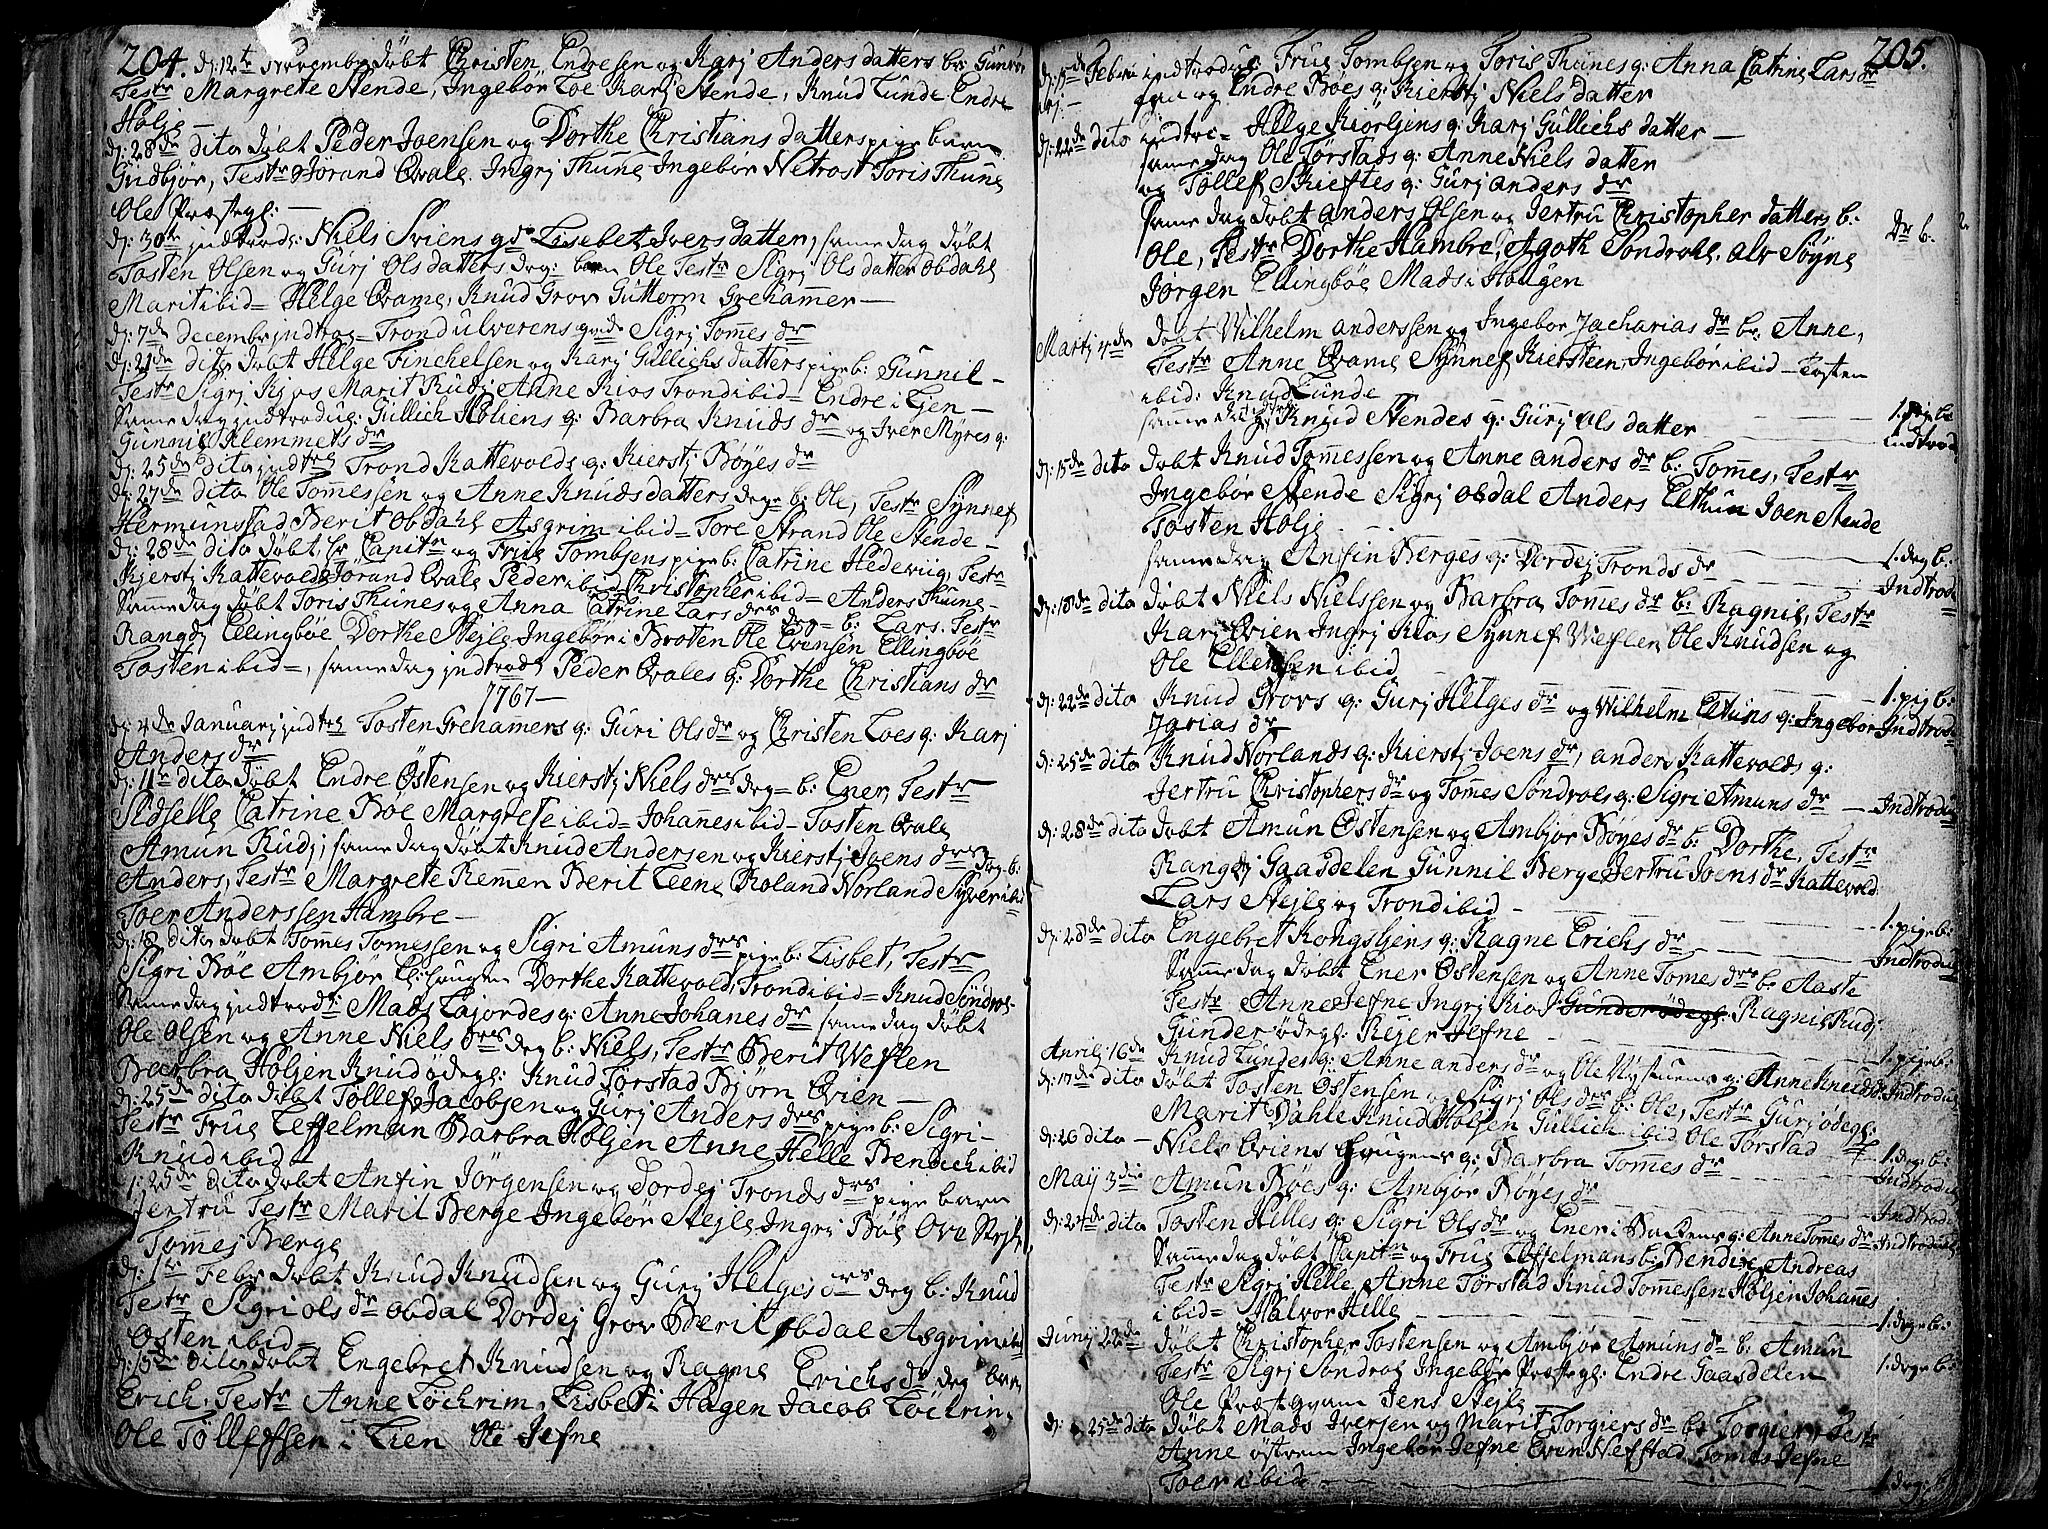 204.
d: 12te Novembr døbt Christen Endresen og Karj Anders datters b: Gunnør
Testr Margrete Stende, Ingebør Loe Karj Stende, Knud Lunde Endre
Holje —
d: 28de dito døbt Peder Joensen og Dorthe Christians datters pige barn
Gudbjør, Testr Jørand Qvale Ingrj Thune Ingebør Netrost Joris Thune
Ole Præstegl: —
d: 30te jndtrod: Niels Sviens qde Lisebet Ivers datter, samme dag døbt
Tosten Olsen og Gurj Ols datters deg: barn Ole Testr Sigrj Ols datter Obdahl
Marit ibid= Helge Qvame, Knud Grov Guttorm Grehammer —
d: 7de decembr jndtrog= Trond Ulverens qnde Sigrj Tomes dr
d: 21de dito døbt Helge Finchelsen og Karj Gullichs datters pige b: Gunnil —
Testr Sigrj Kjos Marit Rudj Anne Kios Trond ibid= Endre i Ljen —
Samme dag jndtrodug: Gullich Høliens q: Barbra Knuds dr og Iver Myres q:
Gunnil Klemmets dr
d: 25de dito jndtrg Trond Kattevolds q: Kierstj Bøyes dr
d: 27de dito Ole Tommessen og Anne Knuds datters deg b: Ole, Testr Synnef
Hermunstad Berit Obdahl Asgrim ibid= Tore Strand Ole Stende —
d: 28de dito døbt Hr Capitr og Frue Tombsens pige b: Catrine Hedewiig, Testr
Kjerstj Kattevold Jørand Qvale Peder ibid Christopher ibid= Anders Thune —
Samme dag døbt Joris Thunes og Anna Catrine Lars drs deg= b: Lars. Testr
Rangdj Ellingbøe Dorthe Stejle Ingebør i Broten Ole Evensen Ellingbøe
Tosten ibid=, samme dag jndtrod: Peder Qvales q: Dorthe Christians dr
1767 —
d: 4de Januarj jndtrg Tosten Grehamers q: Guri Ols dr og Christen Loes q: Karj
Anders dr
d: 11te dito døbt Endre Østensen og Kierstj Niels drs deg= b: Ener, Testr
Sidselle Catrine Bøe Margrete ibid= Johanes ibid= Tosten Qvale
Amun Rudj, samme dag døbt Knud Andersen og Kierstj Joens drs deg b:
Anders, Testr Margrete Remmen Berit Leene Roland Norland Syver ibid
Toer Anderssen Hambre —
d: 18 dito døbt Tomes Tomessen og Sigri Amuns drs pige b: Lisbet, Testr
Sigri Bøe Ambjør Elihaugen Dorthe Kattevold, Trond ibid= Knud Søndrol
Samme dag jndtrod: Mads Lajordes q: Anne Johanes dr samme dag døbt
Ole Olsen og Anne Niels drs deg b: Niels, Testr Berit Weflen
Barbra Høljen Knud ødegl: Knud Tørstad Bjørn Qvien —
d: 25de dito døbt Tøllef Jacobsen og Gurj Anders drs pige b: Sigri —
Testr Frue Leffelman Barbra Høljen Anne Helle Bendich ibid
Knud ibid
d: 25de dito døbt Anfin Jørgensen og Dordej Tronds drs pige barn
Jertru Testr Marit Berge Ingebør Stejle Ingrj Bøe Ove Stejle
Tomes Berge
d: 1te Febr døbt Knud Knudsen og Gurj Helges drs deg b: Knud
Testr Sigri Ols dr Obdal Dordej Grov Berit Obdal Asgrim ibid
Østen ibid=
d: 15de dito døbt Engebret Knudsen og Ragne Erichs dr deg barn
Erich, Testr Anne Løchrim, Lisbet i Hagen Jacob Løchrin,
Ole Tøllefssen i Lien Ole Jefne
205.
d: 15de Febrii indtroduc: Frue Tombsen og Joris Thunes q: Anna Catrine Lars dr
og Endre Bøes q: Kierstj Niels datter
d: 22de dito indtr= Helge Kiørljens q: Karj Gullichs datter —
samme dag Ole Tørstads q: Anne Niels datter
og Tøllef Skieftes q: Gurj anders dr
samme dag døbt anders Olsen og Jertru Christopher datters b:
Ole, Testr Dorthe Hambre, Agoth Søndrohl. alv Søyne
dr b:
Jørgen Ellingbøe Mads i Haugen
Martj 4de døbt Wilhelm anderssen og Ingebor Zacharias dr b: Anne,
Testr Anne Qvame Synnef Kiersteen, Ingebør ibid — Tosten
ibid: Knud Lunde
samme dag Knud Stendes q: Gurj Ols datter
1. pige b:
indtrod
d: 15de dito døbt Knud Tomessen og Anne anders dr b: Tomes, Testr
Ingebør Stende Sigrj Obdal Anders Elthun Joen Stende
Tosten Holje
1. deg b:
samme dag Anfin Berges q: Dordej Tronds dr
Indtrod
d: 18de dito døbt Niels Nielssen og Barbra Tomes dr b: Ragnil, Testr
Karj Qvien Ingrj Kios Synnef Weflen Ole Knudsen og
Ole Ellensen ibid
1. pig b:
d: 22de dito Knud Grovs q: Gurj Helges dr og Wilhelm Eltuns q: Ingebor
Indtrod
Zarias dr
d: 25de dito Knud Norlands q: Kierstj Joens dr, anders Kattevolds q:
Jertru Christophers dr og Tomes Søndrols q: Sigri Amuns dr — Indtrodu
d: 28de dito døbt Amun Østensen og Ambjør Bøyes dr b: Dorthe, Testr
Rangdj Gaasdelen Gunnil Berge Jertru Joens dr Kattevold
Lars Stejle og Trond ibid —
1. pige b:
d: 28de dito Engebret Kongsljens q: Ragne Erichs dr
Indtrodu
Samme dag døbt Ener Østensen og Anne Tomes drs b: Aaste
Testr Anne Jefne Ingrj Kios Gunder ødegl: Ragnil Rudj
Gunder ødegl: Rejer Jefne
1. pige b:
Aprilj 16de Knud Lundes q: Anne anders dr og Ole Nystuens q: Anne Knuds dr Indtrodu
d: 17de dito døbt Tosten Østensen og Sigrj Ols dr b: Ole, Testr Gurj ødegl:
Marit Dahle Knud Holsen Gullich ibid Ole Tørstad
1. deg b:
d: 26 dito — Niels Qviens Haugens q: Barbra Tomes dr
Indtrodu
May 3die Amun Bøes q: Ambjør Bøyes dr
Indtrodu
d: 27de dito Tosten Helles q: Sigri Ols dr og Ener i Backens q: Anne Tomes dr Indtrodu
Samme dag døbt Capitn og Frue Leffelmans b: Bendix Andreas
Testr Sigrj Helle Anne Tørstad Knud Tomessen Høljen Johannes
ibid= Halvor Helle
1. dege b:
Junij 22de døbt Christopher Tostensen og Ambjør Amuns dr b: Amun
Testr Sigrj Søndrol Ingebør Præstegl: Endre Gaasdelen
1. dege b:
Ole Præstgram Jens Stejle
d: 25de dito døbt Mads Iversen og Marit Torgiers dr b: Torgier, Testr
Anne østrem Ingebør Jefne Even Nefstad Tomes Jefne
Toer ibid
1 deg: b: